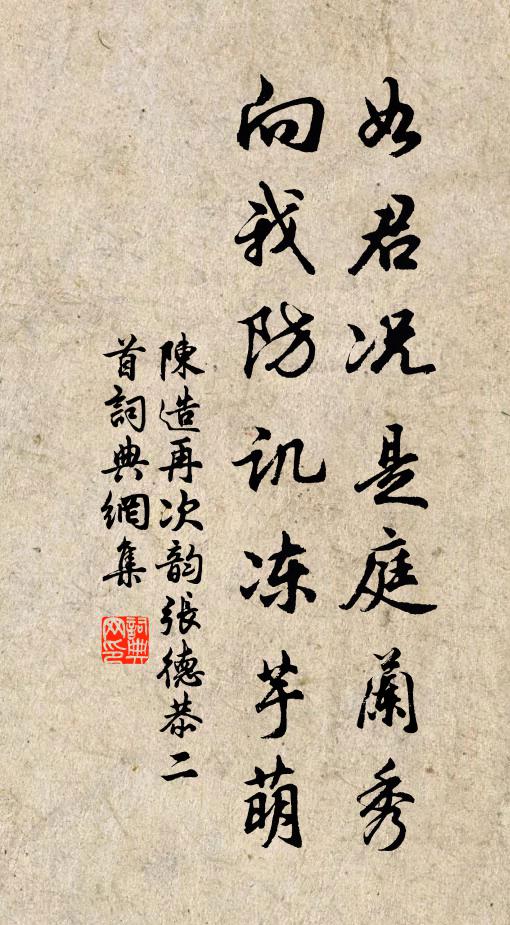 如君况是庭蘭秀
向我防讥冻芋萌
陳造再次韵張德恭二
首詞典網集
詞典
网印